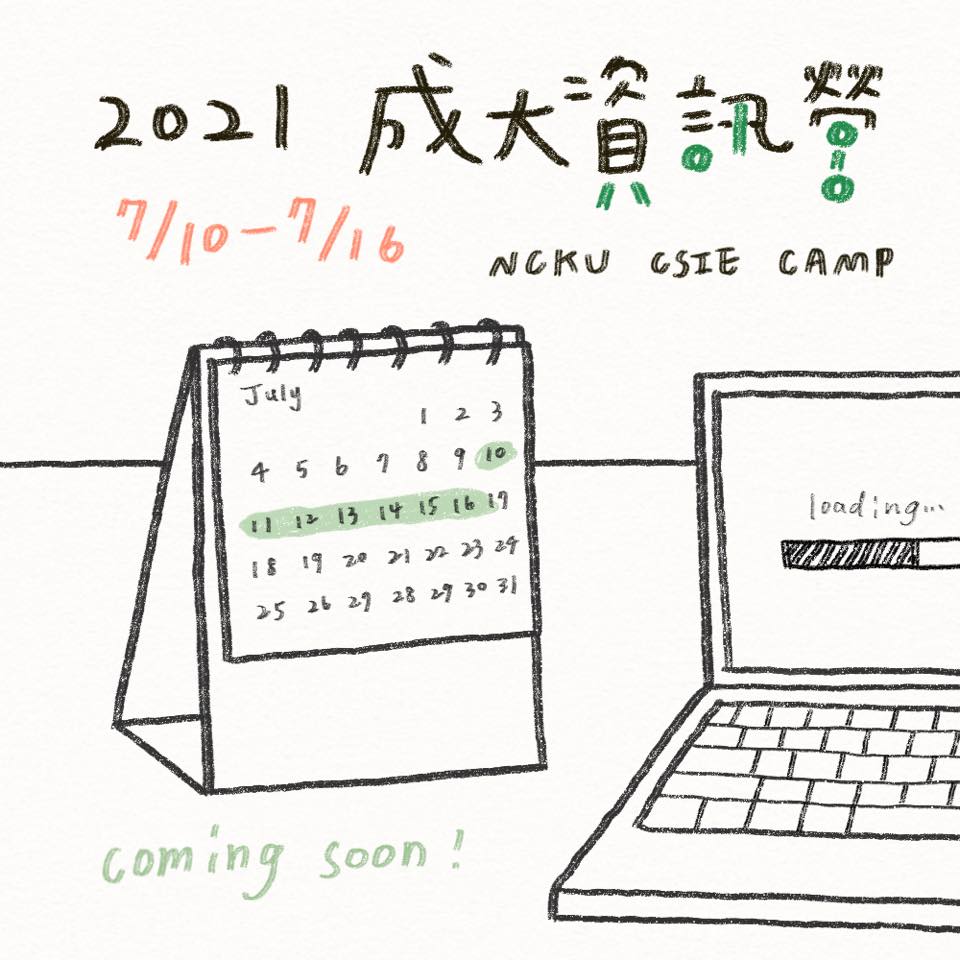 2021 成大資訊營
7/10-7/16
NCKU CSIE CAMP
July
1 2 3
4 5 6 7 8 9 10
11 12 13 14 15 16 17
18 19 20 21 22 23 24
25 26 29 28 29 30 31
loading...
coming soon!